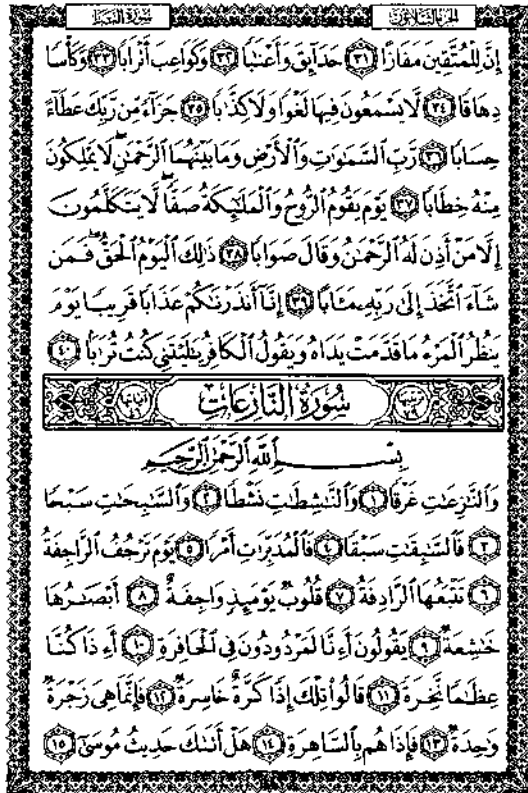 الجزء الثلاثون
سورة النبإ
إِنَّ لِلْمُتَّقِينَ مَفَازًا ٣١ حَدَآئِقَ وَأَعْنَٰبًا ٣٢ وَكَوَاعِبَ أَتْرَابًا ٣٣ وَكَأْسًا
دِهَاقًا ٣٤ لَّا يَسْمَعُونَ فِيهَا لَغْوًا وَلَا كِذَّٰبًا ٣٥ جَزَآءً مِّن رَّبِّكَ عَطَآءً
حِسَابًا ٣٦ رَّبِّ ٱلسَّمَٰوَٰتِ وَٱلْأَرْضِ وَمَا بَيْنَهُمَا ٱلرَّحْمَٰنِ ۖ لَا يَمْلِكُونَ
مِنْهُ خِطَابًا ٣٧ يَوْمَ يَقُومُ ٱلرُّوحُ وَٱلْمَلَٰٓئِكَةُ صَفًّا ۖ لَّا يَتَكَلَّمُونَ
إِلَّا مَنْ أَذِنَ لَهُ ٱلرَّحْمَٰنُ وَقَالَ صَوَابًا ٣٨ ذَٰلِكَ ٱلْيَوْمُ ٱلْحَقُّ ۖ فَمَن
شَآءَ ٱتَّخَذَ إِلَىٰ رَبِّهِۦ مَـَٔابًا ٣٩ إِنَّآ أَنذَرْنَٰكُمْ عَذَابًا قَرِيبًا يَوْمَ
يَنظُرُ ٱلْمَرْءُ مَا قَدَّمَتْ يَدَاهُ وَيَقُولُ ٱلْكَافِرُ يَٰلَيْتَنِى كُنتُ تُرَٰبًۢا ٤٠
سُورَةُ النَّازِعَاتِ
بِسْمِ ٱللَّهِ ٱلرَّحْمَٰنِ ٱلرَّحِيمِ
وَٱلنَّٰزِعَٰتِ غَرْقًا ١ وَٱلنَّٰشِطَٰتِ نَشْطًا ٢ وَٱلسَّٰبِحَٰتِ سَبْحًا
٣ فَٱلسَّٰبِقَٰتِ سَبْقًا ٤ فَٱلْمُدَبِّرَٰتِ أَمْرًا ٥ يَوْمَ تَرْجُفُ ٱلرَّاجِفَةُ
٦ تَتْبَعُهَا ٱلرَّادِفَةُ ٧ قُلُوبٌ يَوْمَئِذٍ وَاجِفَةٌ ٨ أَبْصَٰرُهَا
خَٰشِعَةٌ ٩ يَقُولُونَ أَءِنَّا لَمَرْدُودُونَ فِى ٱلْحَافِرَةِ ١٠ أَءِذَا كُنَّا
عِظَٰمًا نَّخِرَةً ١١ قَالُوا۟ تِلْكَ إِذًا كَرَّةٌ خَاسِرَةٌ ١٢ فَإِنَّمَا هِىَ زَجْرَةٌ
وَٰحِدَةٌ ١٣ فَإِذَا هُم بِٱلسَّاهِرَةِ ١٤ هَلْ أَتَىٰكَ حَدِيثُ مُوسَىٰٓ ١٥